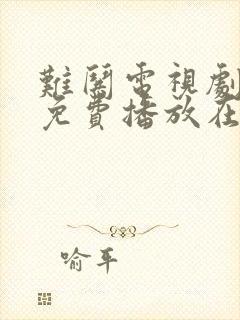 難鬪電視劇
免費播放在
喻平